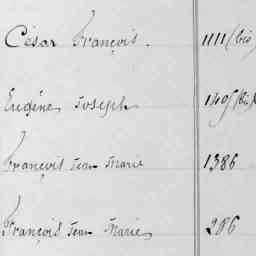 César François. 1111 (bis)
Eugène Joseph 1495 (bis)
François Jean Marie 1386
François Jean Marie 286